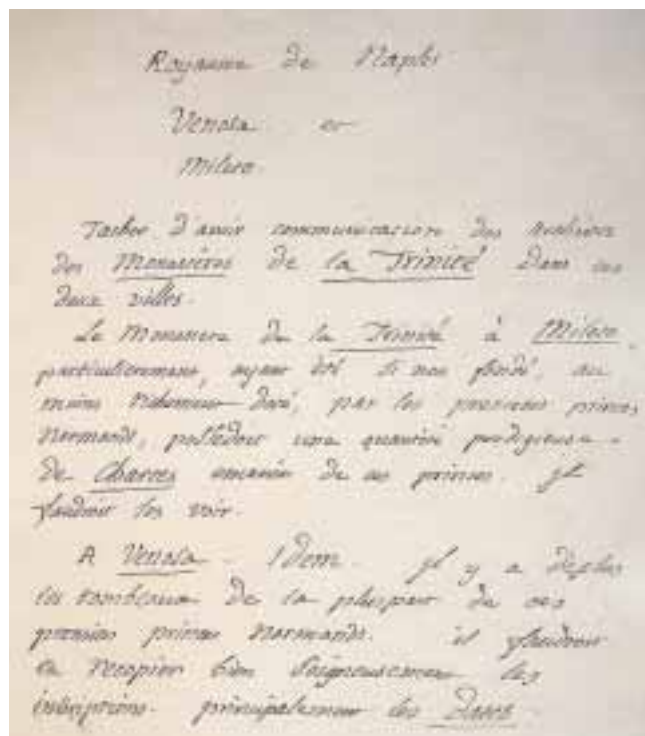 Royaume de Naples
Venosa et
Mileto.
Tacher d'avoir communication des archives
des Monasteres de la Trinité dans ces
deux villes.
Le Monastere de la Trinité à Mileto,
particulierement, ayant été si non fondé, au
moins richement doté, par les premiers princes
Normands, possédoit une quantité prodigieuse
de Chartes emanées de ces princes. Il
faudroit les voir.
A Venosa. Idem. Il y a de plus
les tombeaux de la pluspart de ces
premiers princes Normands. il faudroit
en recopier bien soigneusement les
inscriptions. principalement les Dates.